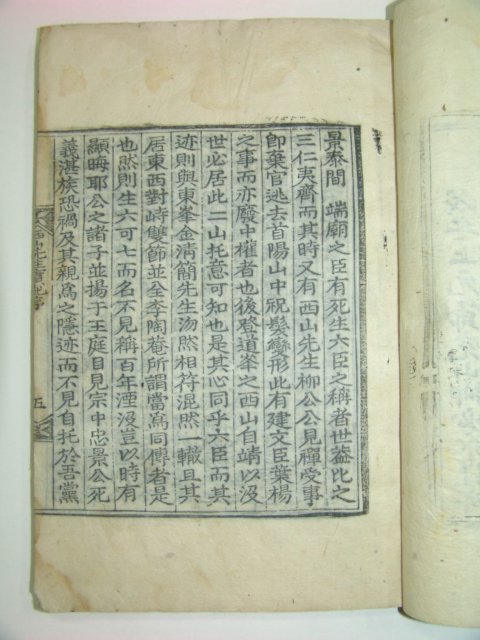 景泰間 端廟之臣有死生六臣之稱者世盖比之
三仁夷齊而其時又有西山先生柳公公見禪受事
卽棄官逃去首陽山中祝髮變形此有建文臣葉楊
之事而亦廢中權者也後登道峯之西山自靖以沒
世必居此二山托意可知也是其心同乎六臣而其
迹則與東峯金清簡先生沕然相符混然一轍且其
居東西對峙雙節並全李陶菴所謂當爲同傳者是
也然則生六可七而名不見稱百年湮沒豈以時有
顯晦耶公之諸子並揚于王庭目見宗中忠景公死
義湛族恐禍及其親爲之隱迹而不見自托於吾黨
五